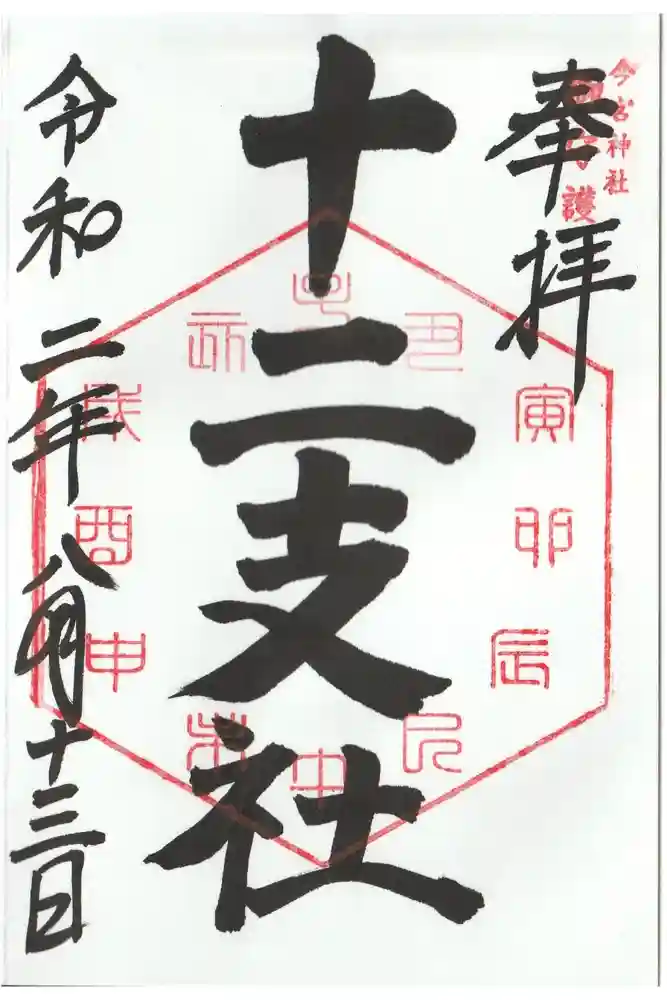 奉拝
今宮神社
護
十二支社
子
丑
寅
卯
辰
巳
午
未
申
酉
戌
亥
令和二年八月十三日